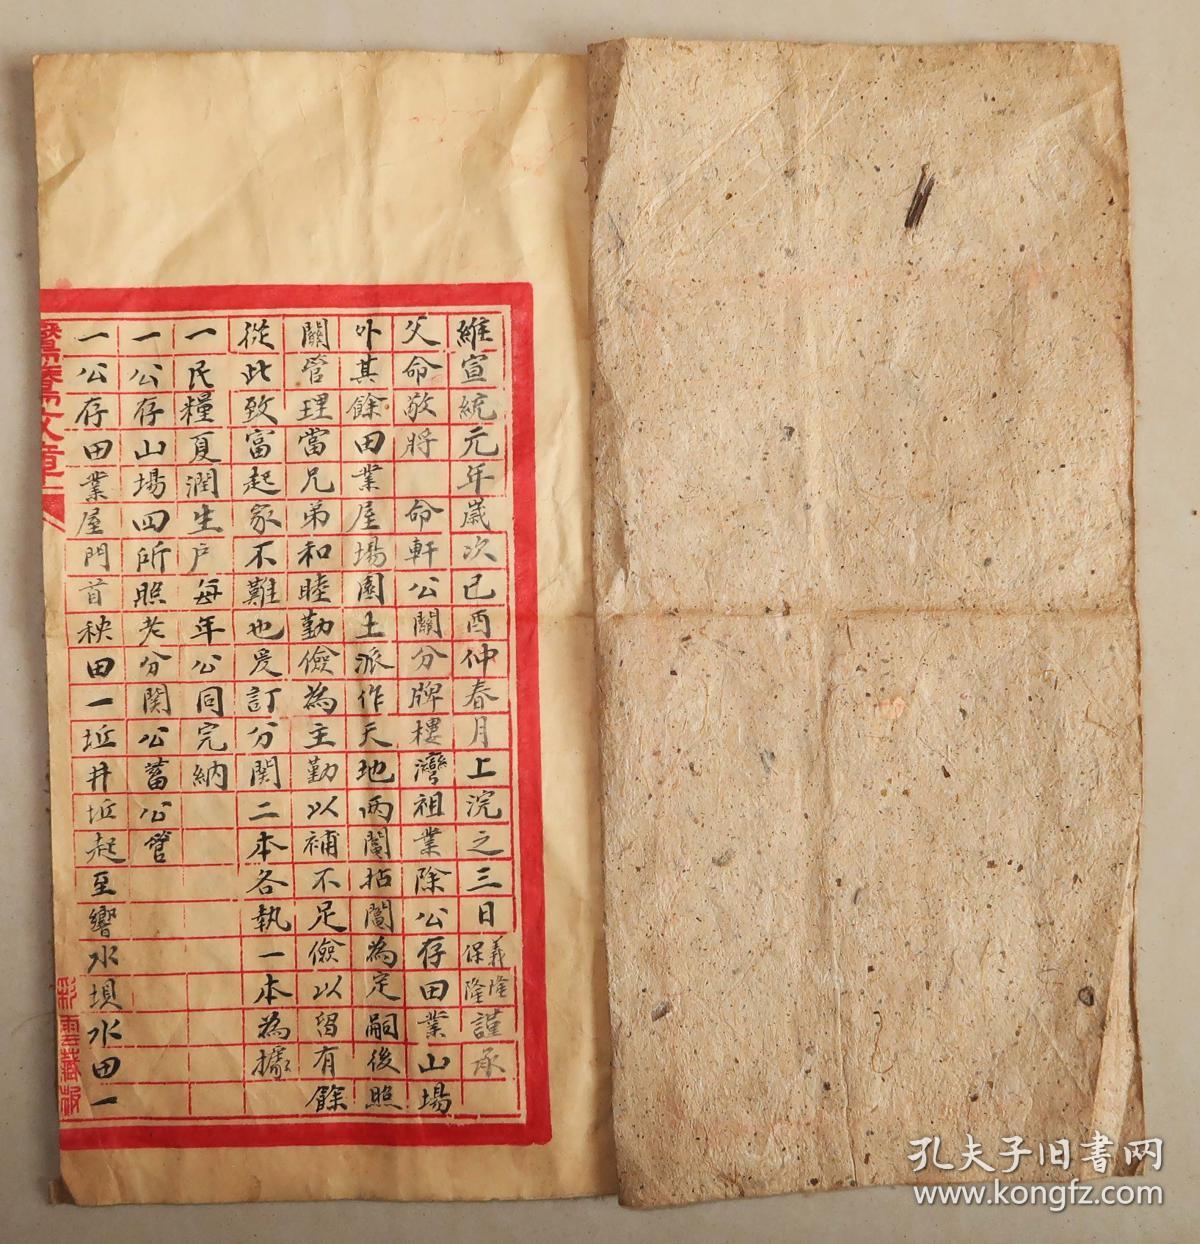 維宣統元年歲次己酉仲春月上浣之三日義隆保隆謹承
父命敬將 命軒公關分牌樓灣祖業除公存田業山場
外其餘田業屋場園土派作天地兩鬮拈鬮為定嗣後照
關管理當兄弟和睦勤儉為主勤以補不足儉以留有餘
從此致富起家不難也爰訂分関二本各執一本為據
一民糧夏潤生户每年公同完納
一公存山場四所照老分関公蓄公管
一公存田業屋門首秧田一坵井坵起至響水壩水田一
文章
彩雲藏板
孔夫子旧书网
www.kongfz.com